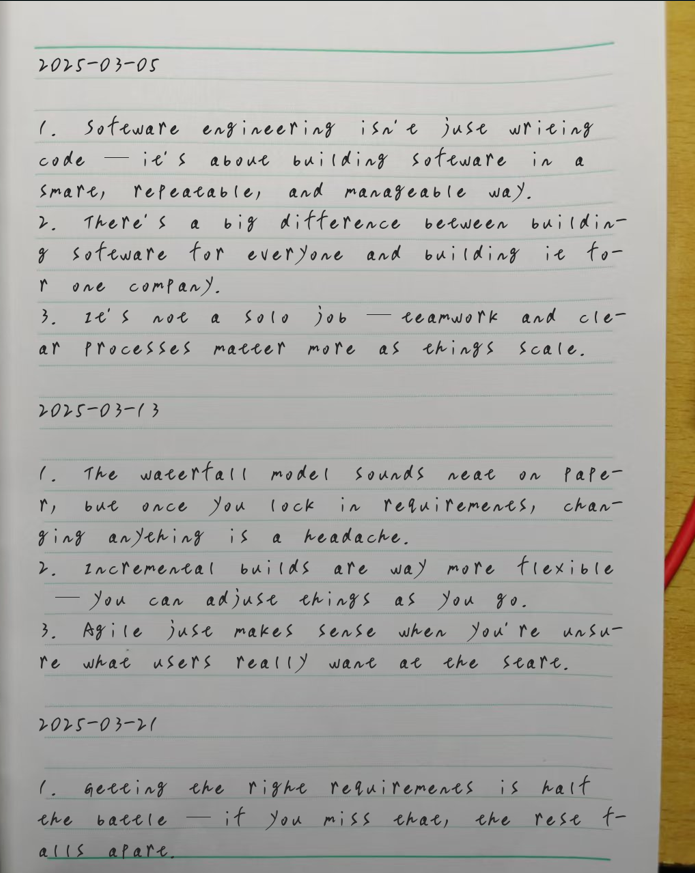 2025-03-05
1. Software engineering isn't just writing
code — it's about building software in a
smart, repeatable, and manageable way.
2. There's a big difference between buildin-
g software for everyone and building it fo-
r one company.
3. It's not a solo job — teamwork and cle-
ar processes matter more as things scale.
2025-03-13
1. The waterfall model sounds neat on pape-
r, but once you lock in requirements, chan-
ging anything is a headache.
2. Incremental builds are way more flexible
— you can adjust things as you go.
3. Agile just makes sense when you're unsu-
re what users really want at the start.
2025-03-21
1. Getting the right requirements is half
the battle — if you miss that, the rest f-
alls apart.